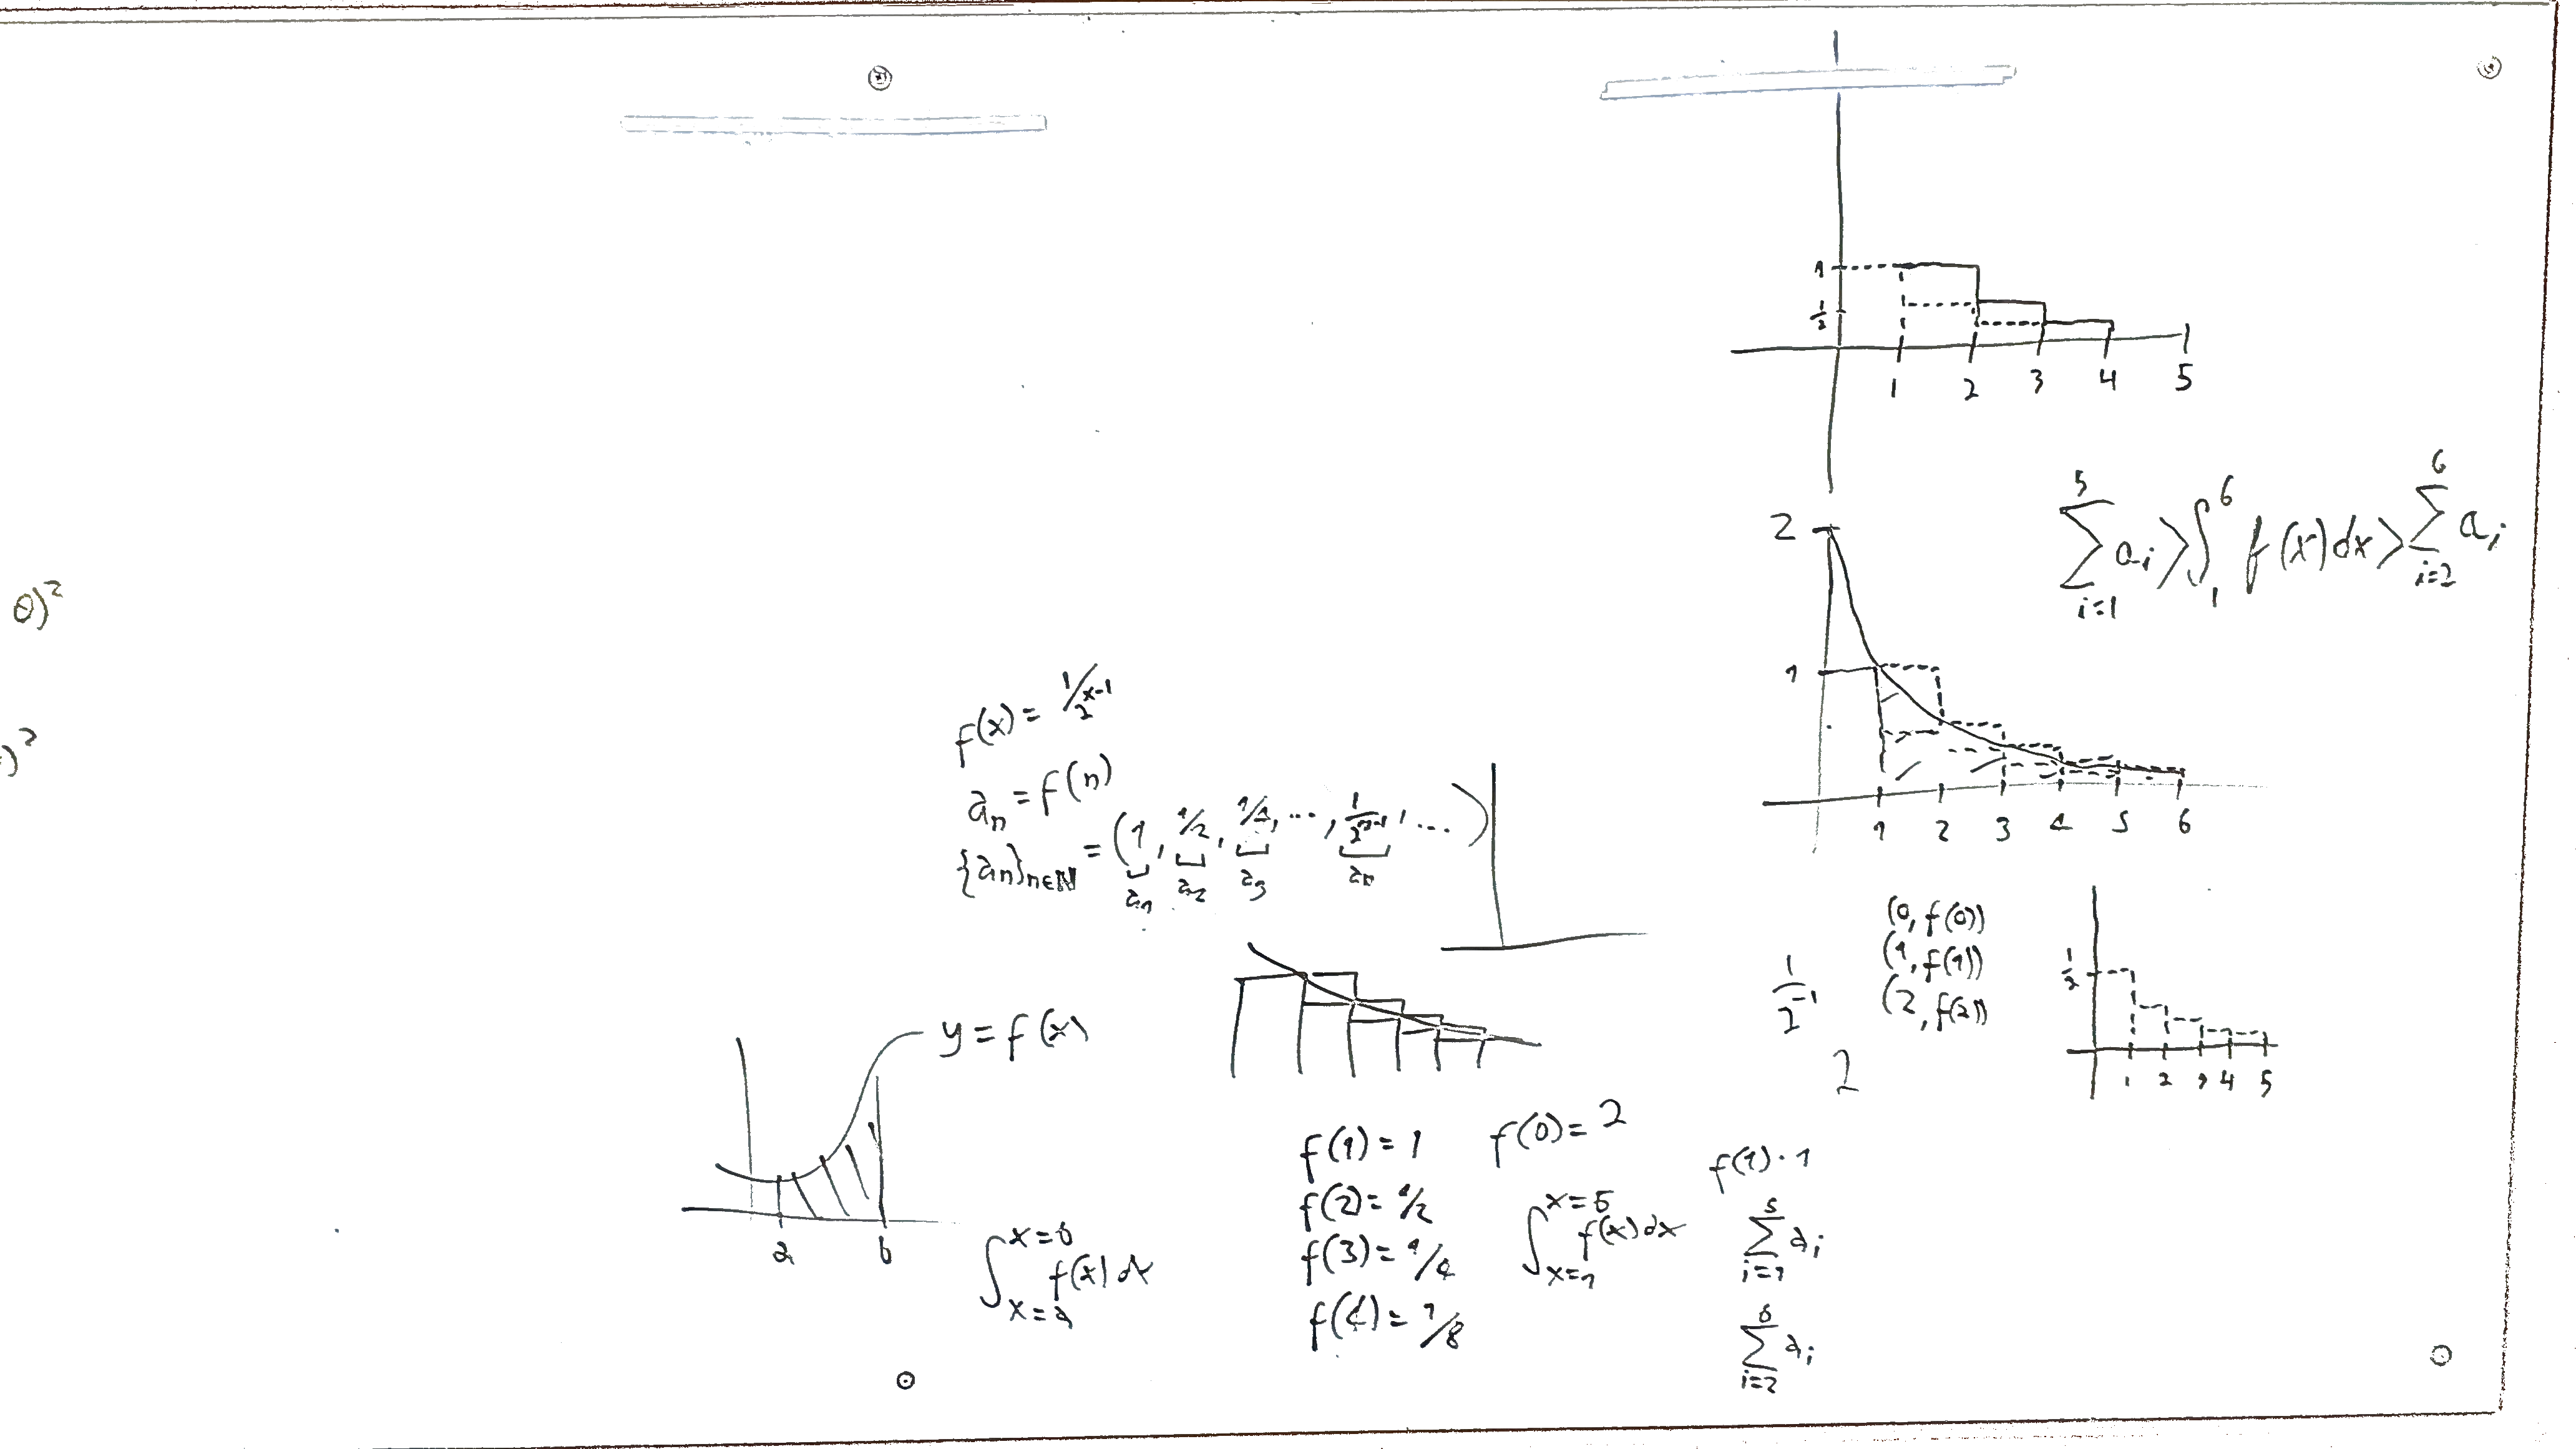 θ)²
)²
f(x) = 1/2^(x-1)
aₙ = f(n)
{aₙ}ₙ∈ℕ = (1, 1/2, 1/4, ..., 1/2^(n-1), ...)
a₁ a₂ a₃ aₙ
y = f(x)
a b
∫_{x=a}^{x=b} f(x) dx
f(1) = 1
f(2) = 1/2
f(3) = 1/4
f(4) = 1/8
f(0) = 2
∫_{x=1}^{x=5} f(x) dx
f(1) · 1
∑_{i=1}^{5} aᵢ
∑_{i=2}^{6} aᵢ
1
1/2
1 2 3 4 5
∑_{i=1}^{5} aᵢ > ∫_1^6 f(x) dx > ∑_{i=2}^{6} aᵢ
2
1
1 2 3 4 5 6
1/2^-1
2
(0, f(0))
(1, f(1))
(2, f(2))
1/2
1 2 3 4 5